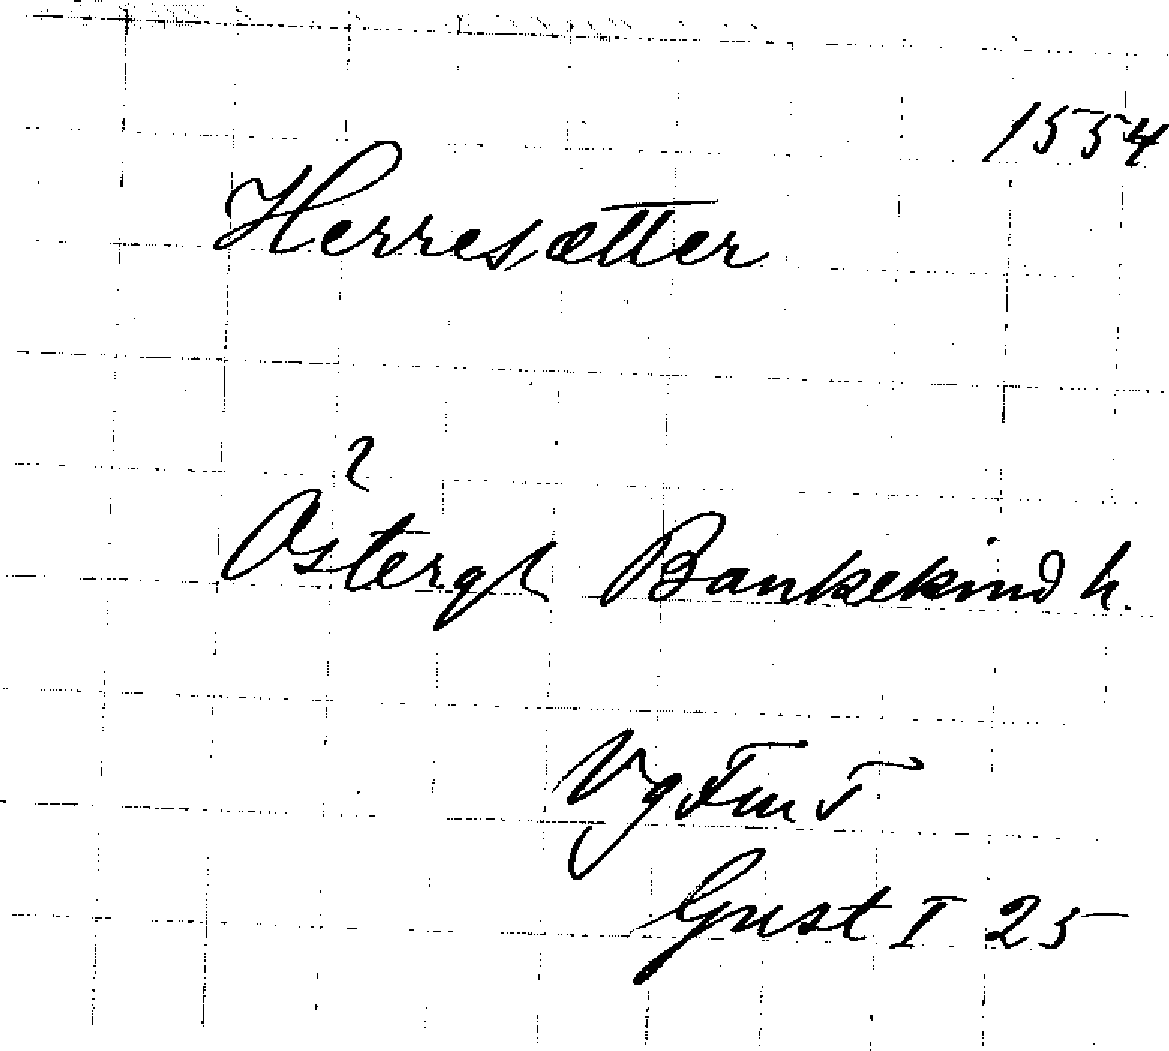 1554
Herresætter
?
Östergl Bankekind h.
Gust I 25